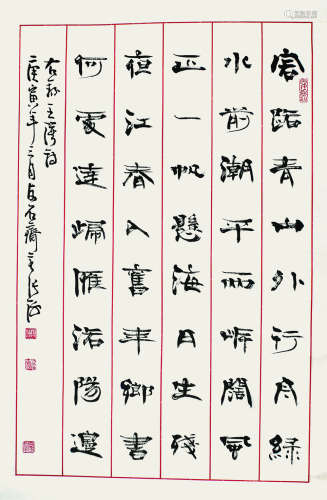 客路青山外行舟綠
水前潮平兩岸闊風
正一帆懸海日生殘
夜江春入舊年鄉書
何處達歸雁洛陽邊
右錄王灣詩
庚寅年三月